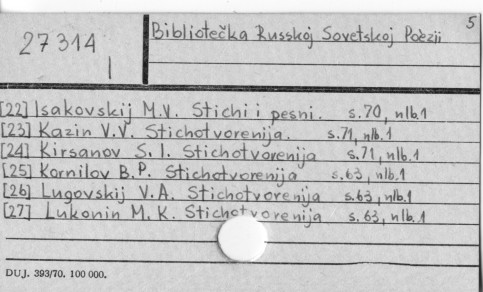 5
27314 Bibliotečka Russkoj Sovetskoj Poèzii
[22] Isakovskij M.V. Stichi i pesni. s.70, nlb.1
[23] Kazin V.V. Stichotvorenija. s.71, nlb.1
[24] Kirsanov S.I. Stichotvorenija s.71, nlb.1
[25] Kornilov B.P. Stichotvorenija s.63, nlb.1
[26] Lugovskij V.A. Stichotvorenija s.63, nlb.1
[27] Lukonin M.K. Stichotvorenija s.63, nlb.1
DUJ. 393/70. 100 000.